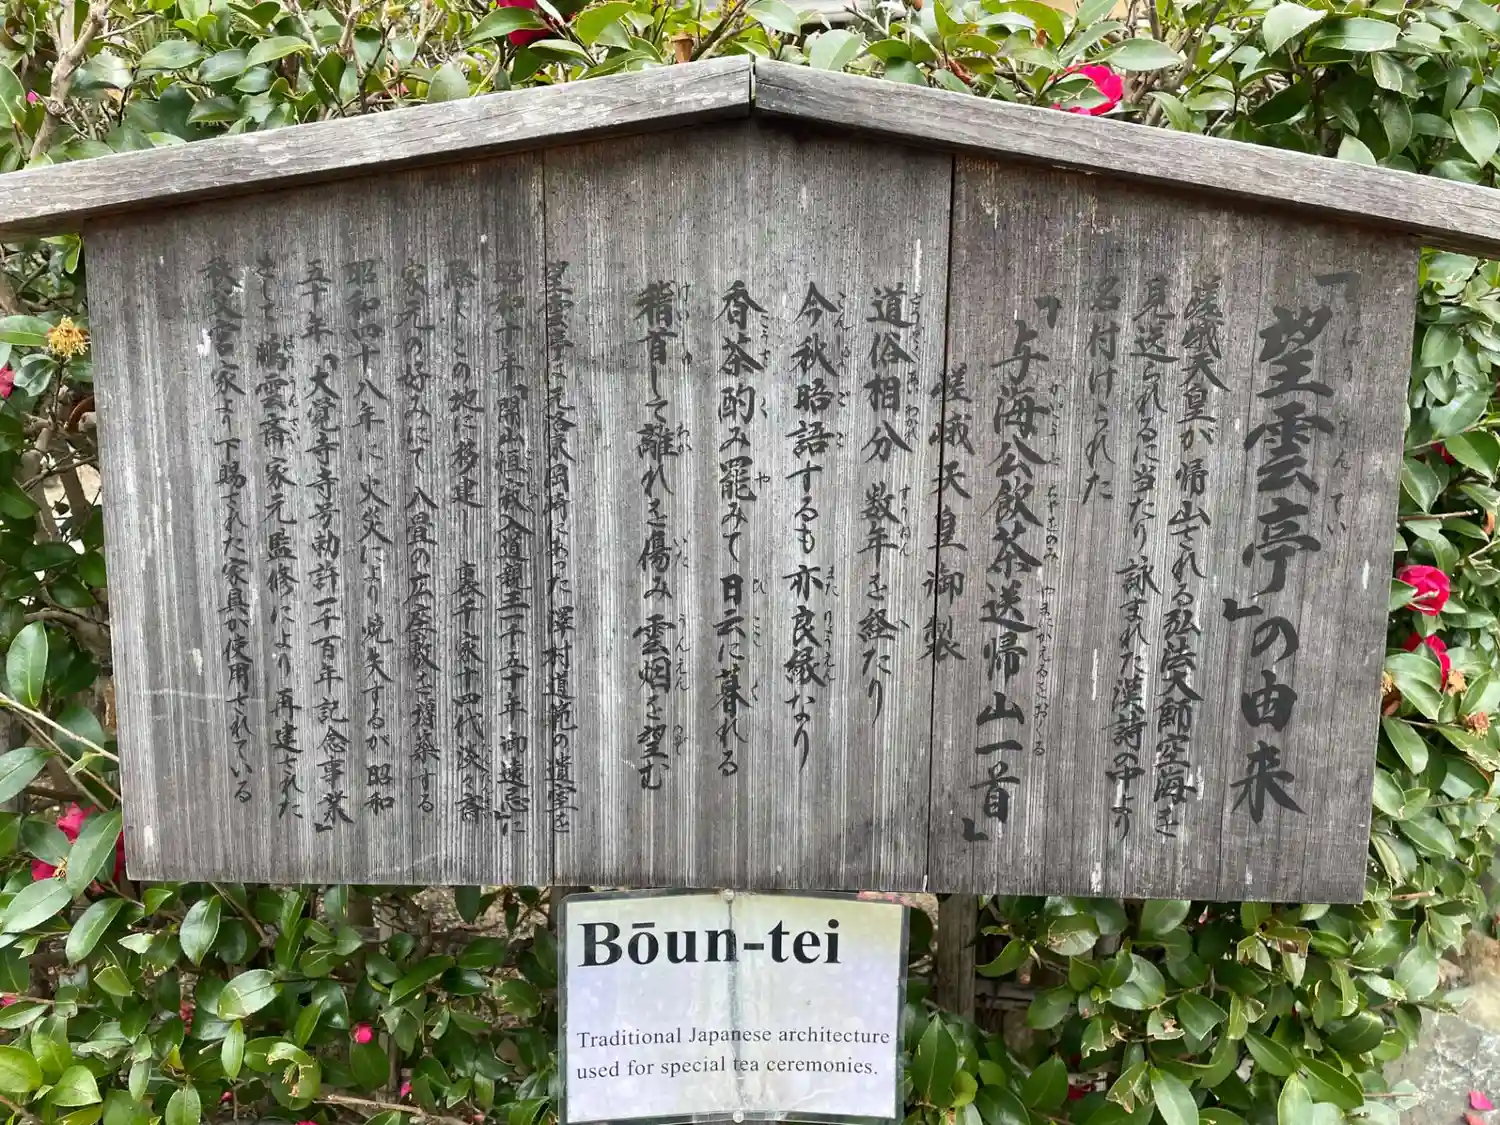 「望雲亭」の由来
ぼううんてい
嵯峨天皇が帰山される弘法大師空海を
見送られるに当たり詠まれた漢詩の中より
名付けられた
「与海公飲茶送帰山一首」
かいこうとちゃをのみやまにかえるをおくる
嵯峨天皇御製
道俗相分れ数年を経たり
今秋昭語するも亦良縁なり
香茶酌み罷みて日云に暮れる
稽首して離れを傷み雲烟を望む
望雲亭は元洛東岡崎にあった澤村道範の遺室を
昭和十年「開山恒寂入道親王一千五十年御遠忌」に
際しこの地に移建し裏千家十四代淡々斎
家元の好みにて八畳の広座敷を増築する
昭和四十八年に火災により焼失するが昭和
五十年「大覚寺寺号勅許一千百年記念事業」
として鵬雲斎家元監修により再建された
秩父宮家より下賜された家具が使用されている
Bōun-tei
Traditional Japanese architecture
used for special tea ceremonies.